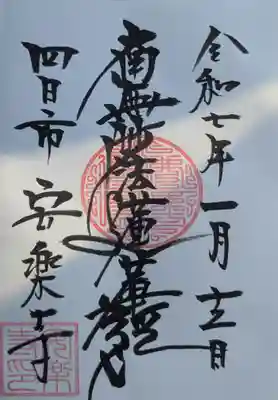 令和七年一月十五日
南無妙法蓮華経
四日市 安楽寺